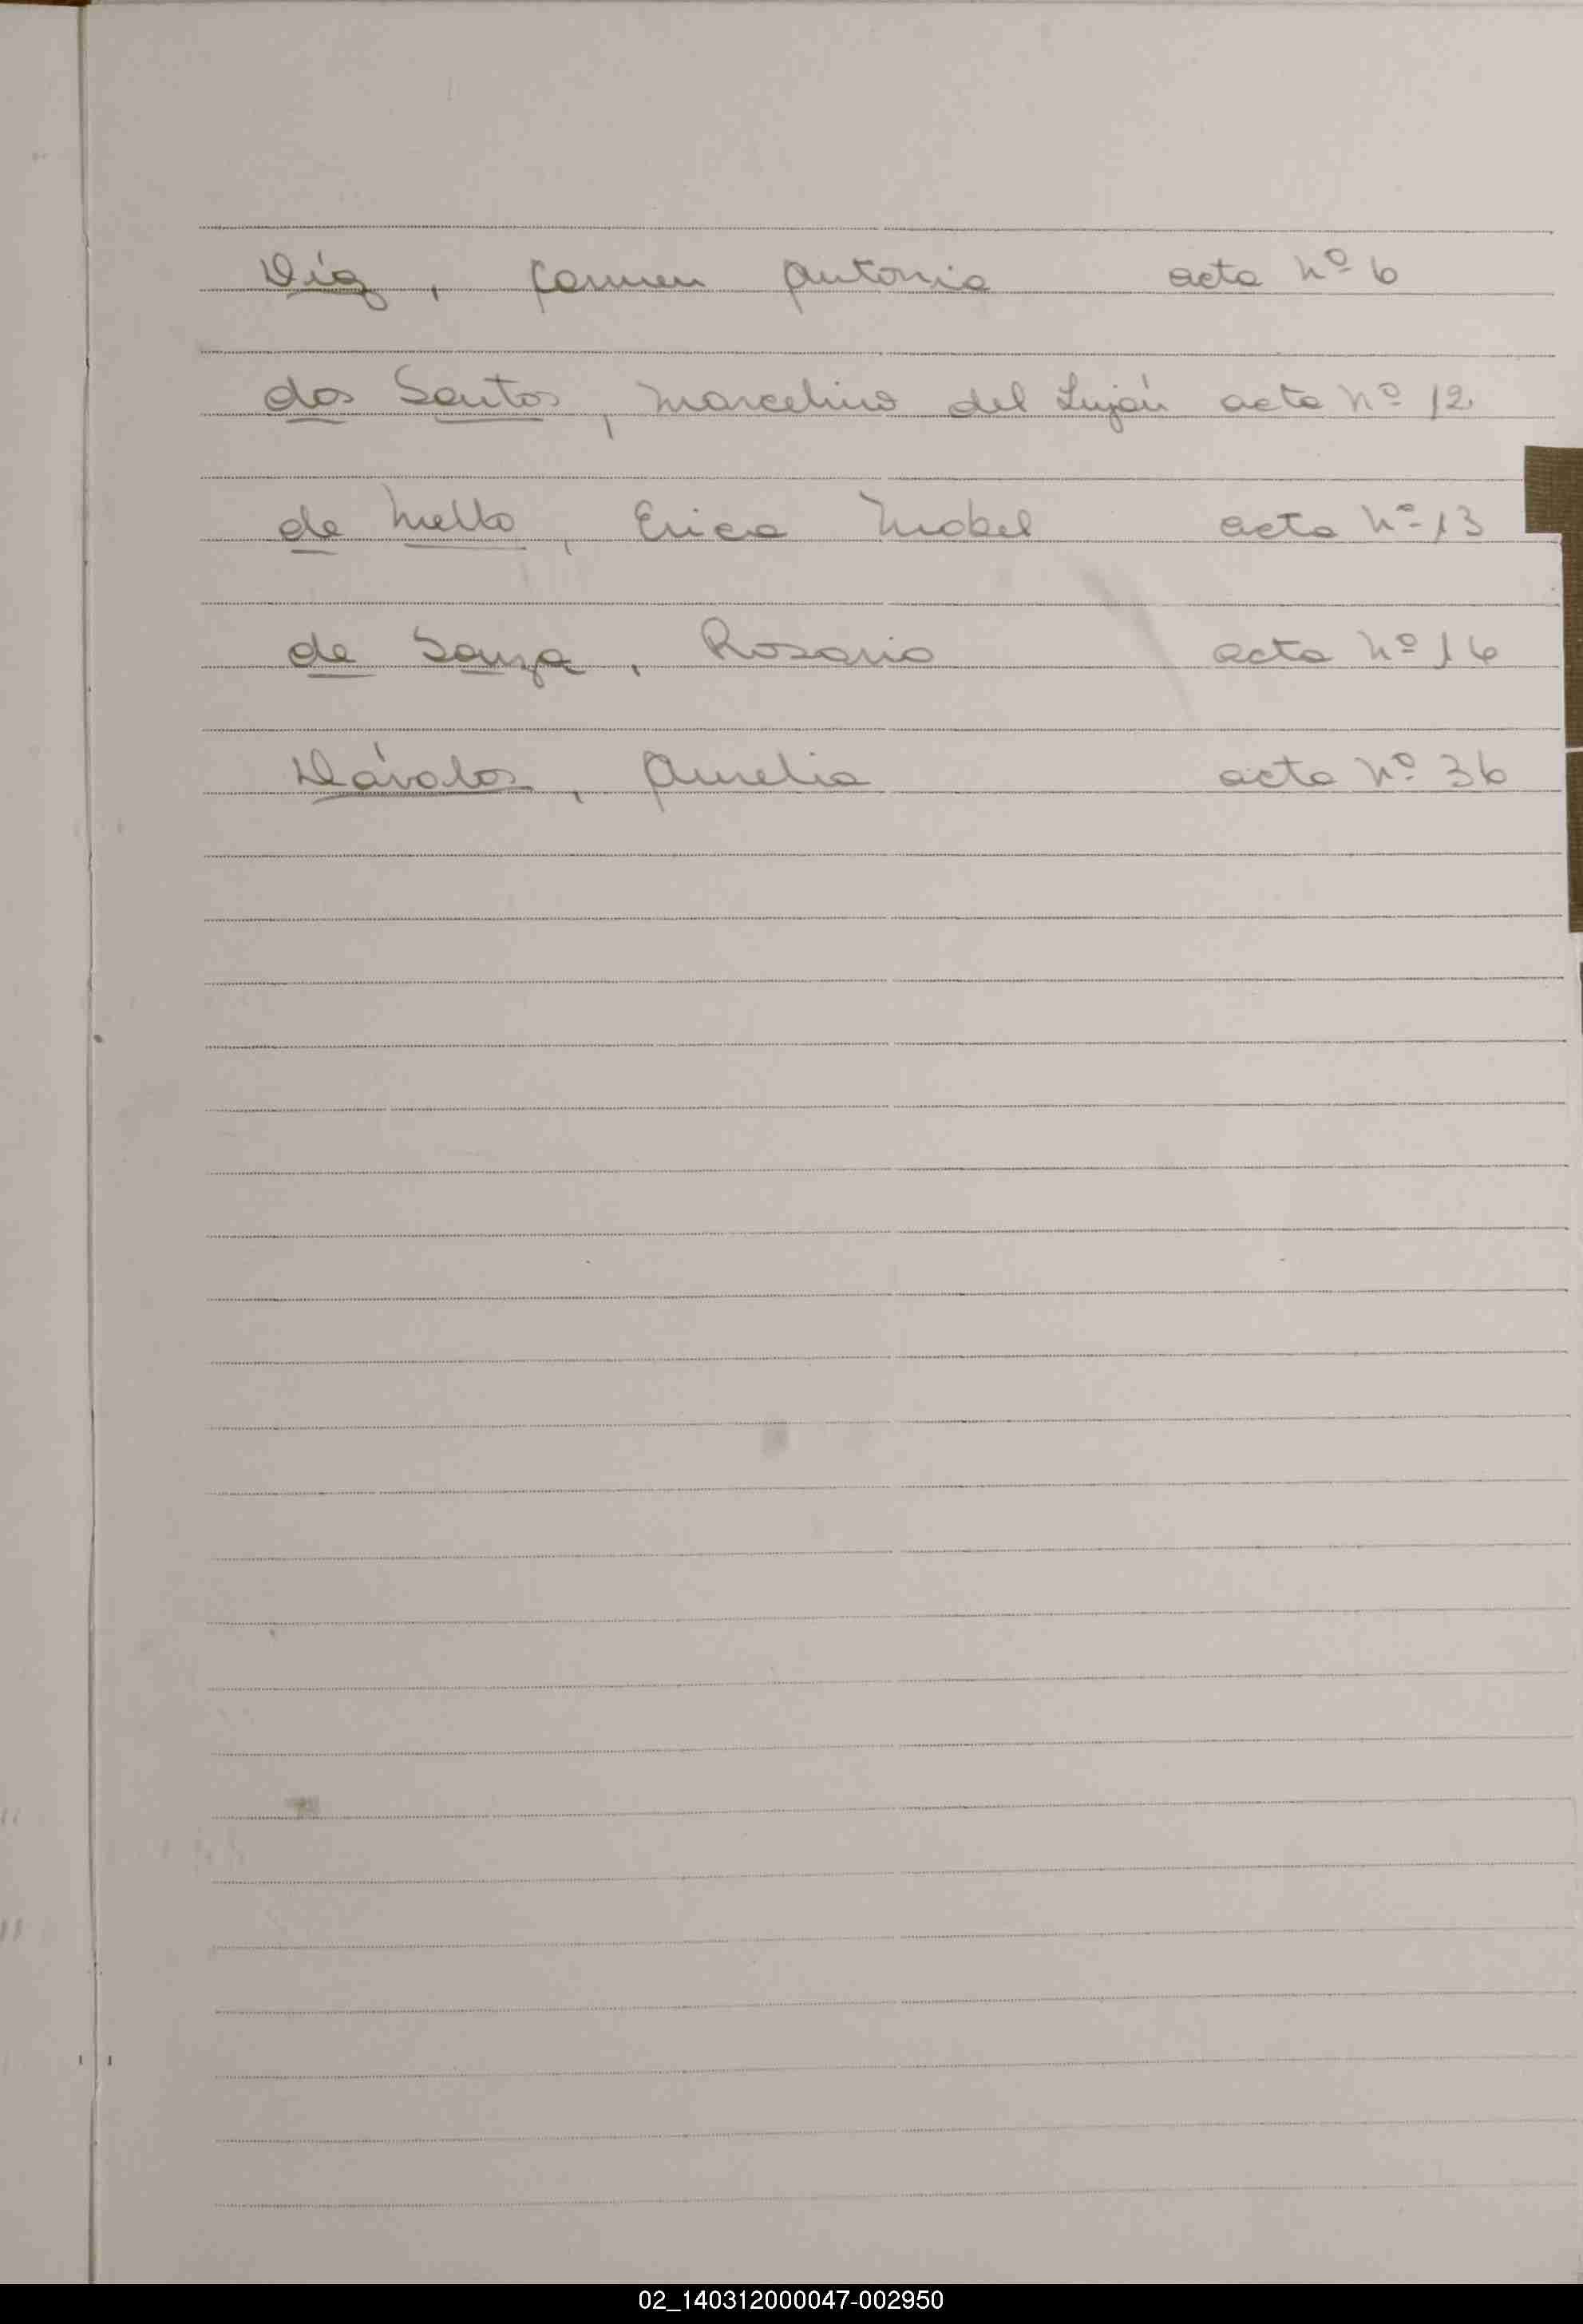 Díaz, Carmen Antonia acta nº 6
dos Santos, Marcelino del Luján acta nº 12
de Mello, Erica Mabel acta nº 13
de Souza, Rosario acta nº 16
Dávalos, Aurelia acta nº 36
02_140312000047-002950